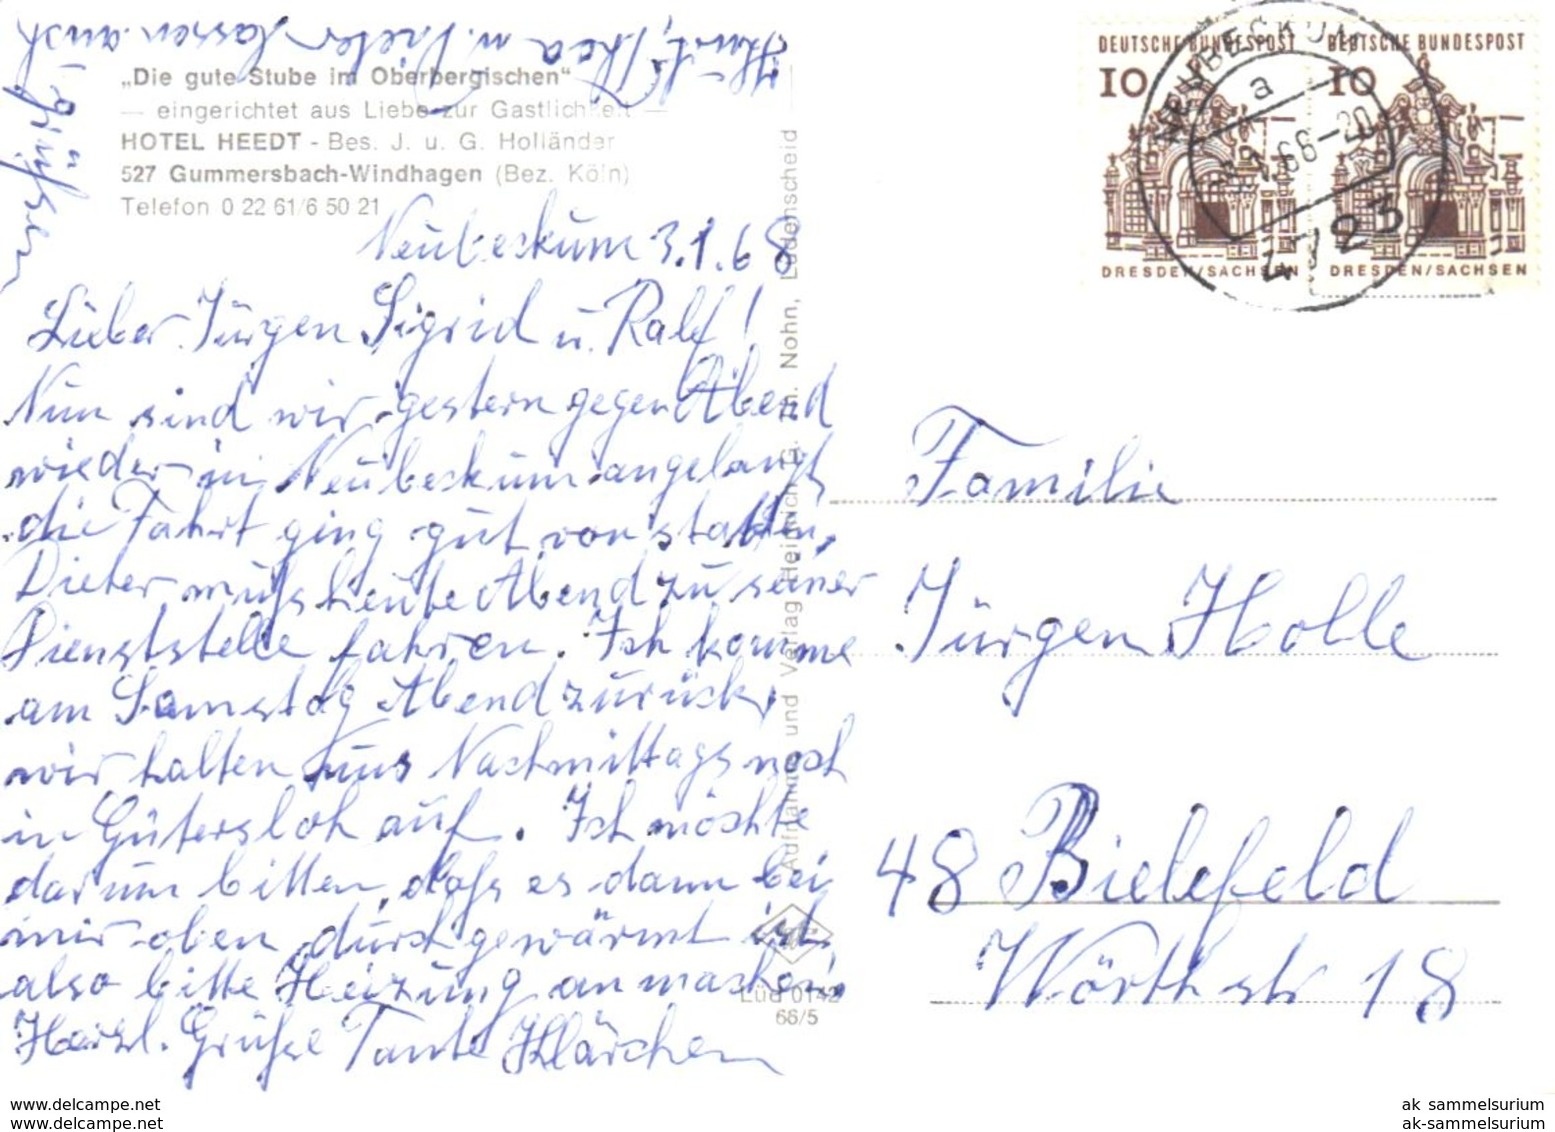 „Die gute Stube im Oberbergischen"
— eingerichtet aus Liebe zur Gastlichkeit —
HOTEL HEEDT - Bes. J. u. G. Holländer
527 Gummersbach-Windhagen (Bez. Köln)
Telefon 0 22 61/6 50 21
Neubeckum 3.1.68
Lieber Jürgen Sigrid u. Ralf!
Nun sind wir gestern gegen Abend
wieder in Neubeckum angelangt,
die Fahrt ging gut von statten,
Dieter muß heute Abend zu seiner
Dienststelle fahren. Ich komme
am Samstag Abend zurück,
wir halten uns Nachmittags noch
in Gütersloh auf. Ich möchte
darum bitten, daß es dann bei
mir oben durchgewärmt ist,
also bitte Heizung anmachen,
Herzl. Grüße Tante Klärchen
Kurt, Thea u. Dieter lassen auch
grüßen
Aufnahme und Verlag Heinrich G. Th. Nohn, Lüdenscheid
Lüd 0142
66/5
DEUTSCHE BUNDESPOST
10
DRESDEN/SACHSEN
DEUTSCHE BUNDESPOST
10
DRESDEN/SACHSEN
NEUBECKUM
a
.1.68-20
4723
Familie
Jürgen Holle
48 Bielefeld
Wörthstr 18
www.delcampe.net
www.delcampe.net
ak_sammelsurium
ak-sammelsurium